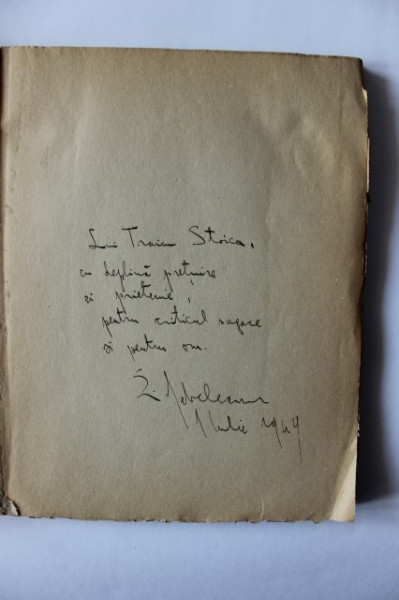 Lui Traian Stoica,
cu deplină prețuire
și prietenie,
pentru criticul sagace
și pentru om.
E. Jebeleanu
1 Iulie 1949